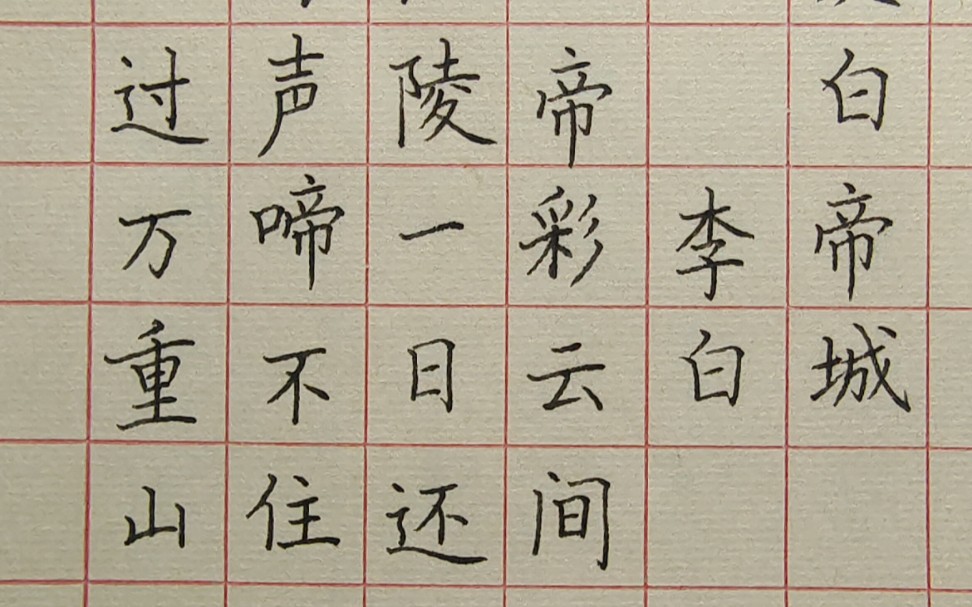 白帝城
李白
帝彩云间
陵一日还
声啼不住
过万重山